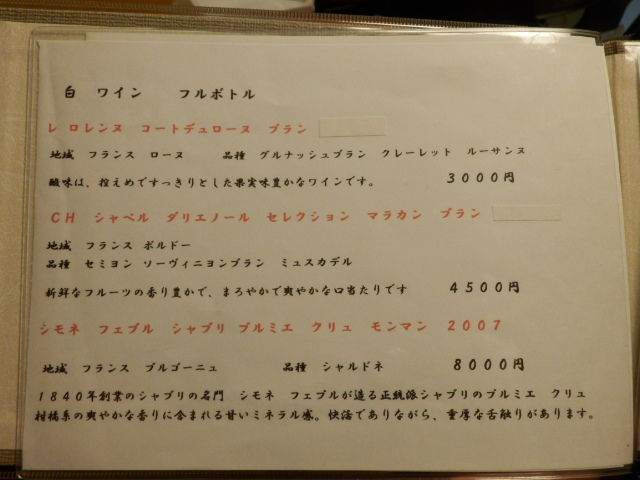 白 ワイン フルボトル
レ ロレンヌ コートデュローヌ ブラン
地域 フランス ローヌ 品種 グルナッシュブラン クレーレット ルーサンヌ
酸味は、控えめですっきりとした果実味豊かなワインです。 3000円
CH シャペル ダリエノール セレクション マラカン ブラン
地域 フランス ボルドー
品種 セミヨン ソーヴィニヨンブラン ミュスカデル
新鮮なフルーツの香り豊かで、まろやかで爽やかな口当たりです 4500円
シモネ フェブル シャブリ プルミエ クリュ モンマン 2007
地域 フランス ブルゴーニュ 品種 シャルドネ 8000円
1840年創業のシャブリの名門 シモネ フェブルが造る正統派シャブリのプルミエ クリュ
柑橘系の爽やかな香りに含まれる甘いミネラル感。快活でありながら、重厚な舌触りがあります。